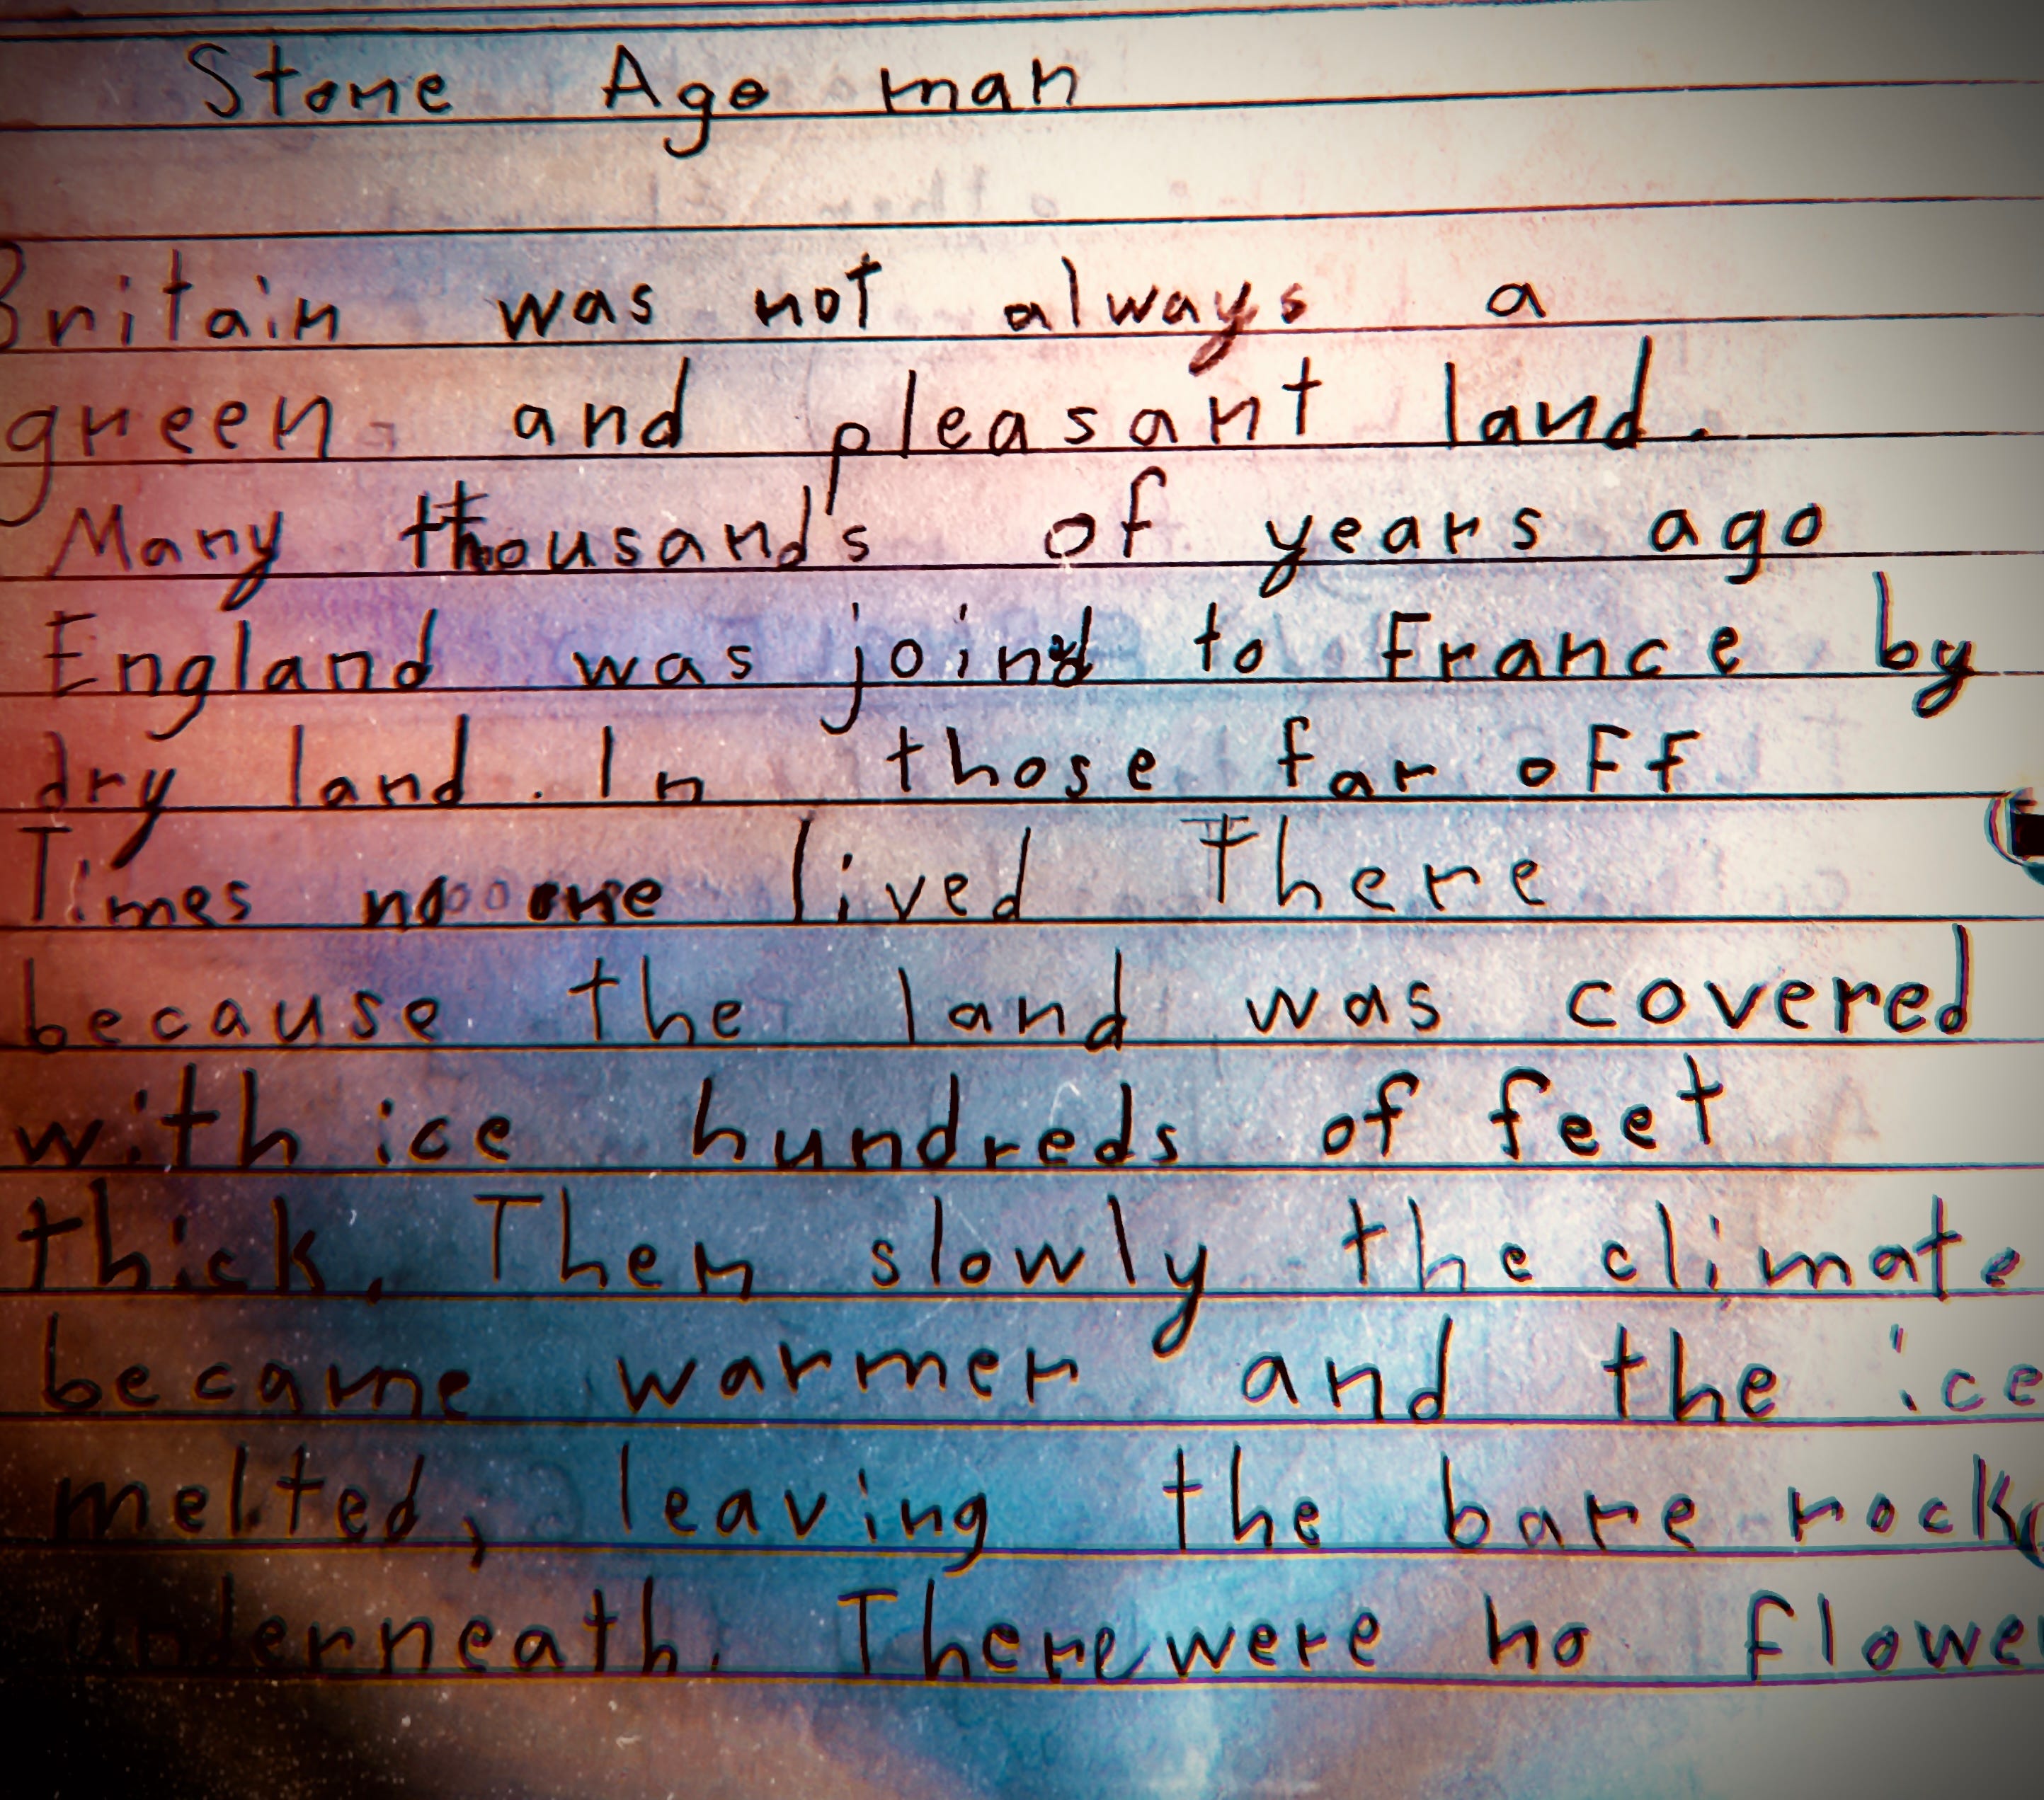 Stone Age man
Britain was not always a
green and pleasant land.
Many thousands of years ago
England was joind to France by
dry land. In those far off
Times no one lived There
because the land was covered
with ice hundreds of feet
thick. Then slowly the climate
became warmer and the ice
melted, leaving the bare rock
underneath. There were no flowe